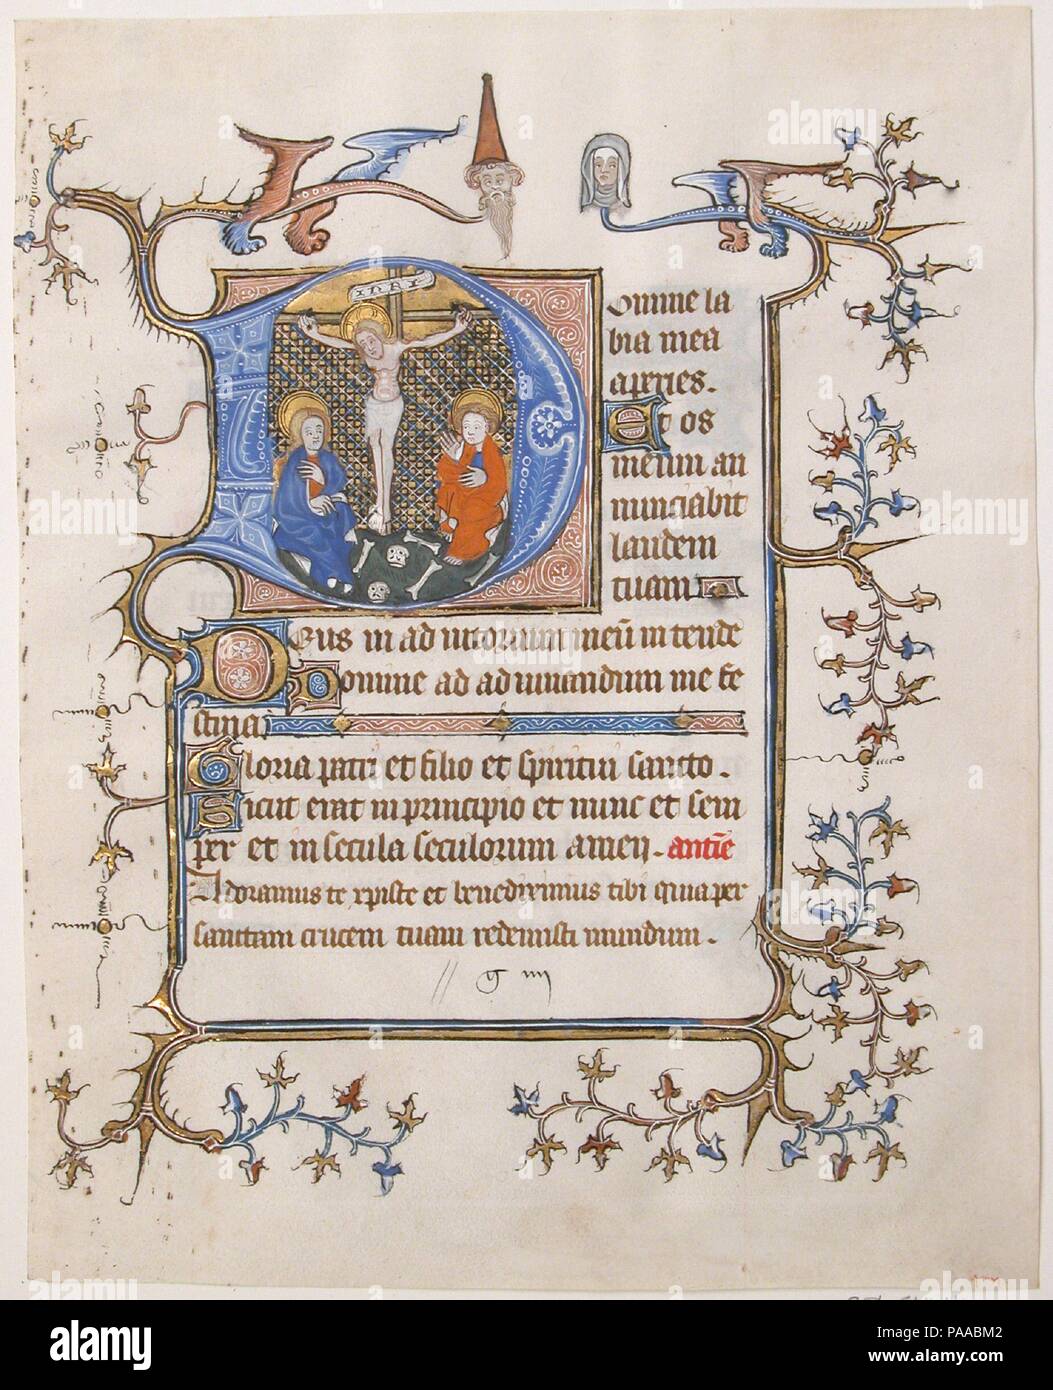 INRI
Domine la
bia mea
aperies.
Et os
meum an
nunciabit
laudem
tuam
Deus in ad iutorium meū in tende
Domine ad ad iuuandum me fe
stina
Gloria patri et filio et spiritui sancto.
Sicut erat in principio et nunc et sem
per et in secula seculorum amen. antiē
Adoramus te xpiste et benedicimus tibi quia per
sanctam crucem tuam redemisti mundum.
alamy
alamy stock photo
Image ID: PAABM2
www.alamy.com